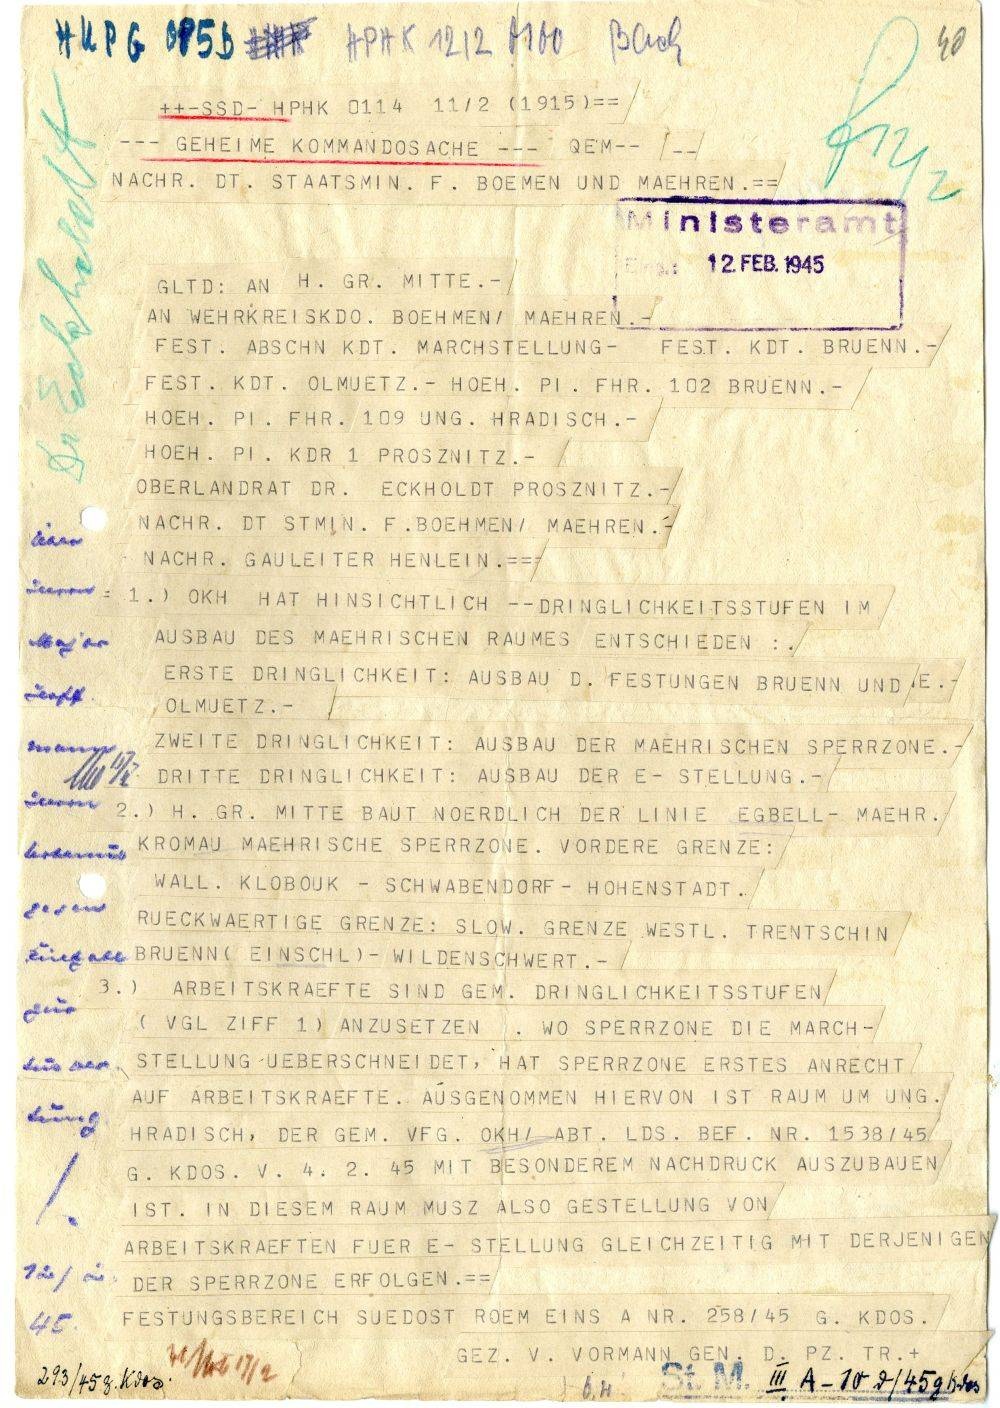 HUPG 0P5b HPHK 12/2 0100
++-SSD- HPHK 0114 11/2 (1915)==
--- GEHEIME KOMMANDOSACHE --- QEM-- /--
NACHR. DT. STAATSMIN. F. BOEMEN UND MAEHREN.==
Ministeramt
12. FEB. 1945
GLTD: AN H. GR. MITTE.-
AN WEHRKREISKDO. BOEHMEN/ MAEHREN.-
FEST. ABSCHN KDT. MARCHSTELLUNG- FEST. KDT. BRUENN.-
FEST. KDT. OLMUETZ.- HOEH. PI. FHR. 102 BRUENN.-
HOEH. PI. FHR. 109 UNG. HRADISCH.-
HOEH. PI. KDR 1 PROSZNITZ.-
OBERLANDRAT DR. ECKHOLDT PROSZNITZ.-
NACHR. DT STMIN. F.BOEHMEN/ MAEHREN.-
NACHR. GAULEITER HENLEIN.===
= 1.) OKH HAT HINSICHTLICH --DRINGLICHKEITSSTUFEN IM
AUSBAU DES MAEHRISCHEN RAUMES ENTSCHIEDEN :.
ERSTE DRINGLICHKEIT: AUSBAU D. FESTUNGEN BRUENN UND .E.-
OLMUETZ.-
ZWEITE DRINGLICHKEIT: AUSBAU DER MAEHRISCHEN SPERRZONE.-
DRITTE DRINGLICHKEIT: AUSBAU DER E- STELLUNG.-
2.) H. GR. MITTE BAUT NOERDLICH DER LINIE EGBELL- MAEHR.
KROMAU MAEHRISCHE SPERRZONE. VORDERE GRENZE:
WALL. KLOBOUK - SCHWABENDORF- HOHENSTADT.
RUECKWAERTIGE GRENZE: SLOW. GRENZE WESTL. TRENTSCHIN
BRUENN( EINSCHL)- WILDENSCHWERT.-
3.) ARBEITSKRAEFTE SIND GEM. DRINGLICHKEITSSTUFEN
( VGL ZIFF 1) ANZUSETZEN . WO SPERRZONE DIE MARCH-
STELLUNG UEBERSCHNEIDET, HAT SPERRZONE ERSTES ANRECHT
AUF ARBEITSKRAEFTE. AUSGENOMMEN HIERVON IST RAUM UM UNG.
HRADISCH, DER GEM. VFG. OKH/ ABT. LDS. BEF. NR. 1538/45
G. KDOS. V. 4. 2. 45 MIT BESONDEREM NACHDRUCK AUSZUBAUEN
IST. IN DIESEM RAUM MUSZ ALSO GESTELLUNG VON
ARBEITSKRAEFTEN FUER E- STELLUNG GLEICHZEITIG MIT DERJENIGEN
DER SPERRZONE ERFOLGEN.==
FESTUNGSBEREICH SUEDOST ROEM EINS A NR. 258/45 G. KDOS.
GEZ. V. VORMANN GEN. D. PZ. TR.+
Dr Eckholdt
Major
gegen
12/2.
45.
293/45 g. Kdos.
St. M. III A - 10 d/45 g Kdos